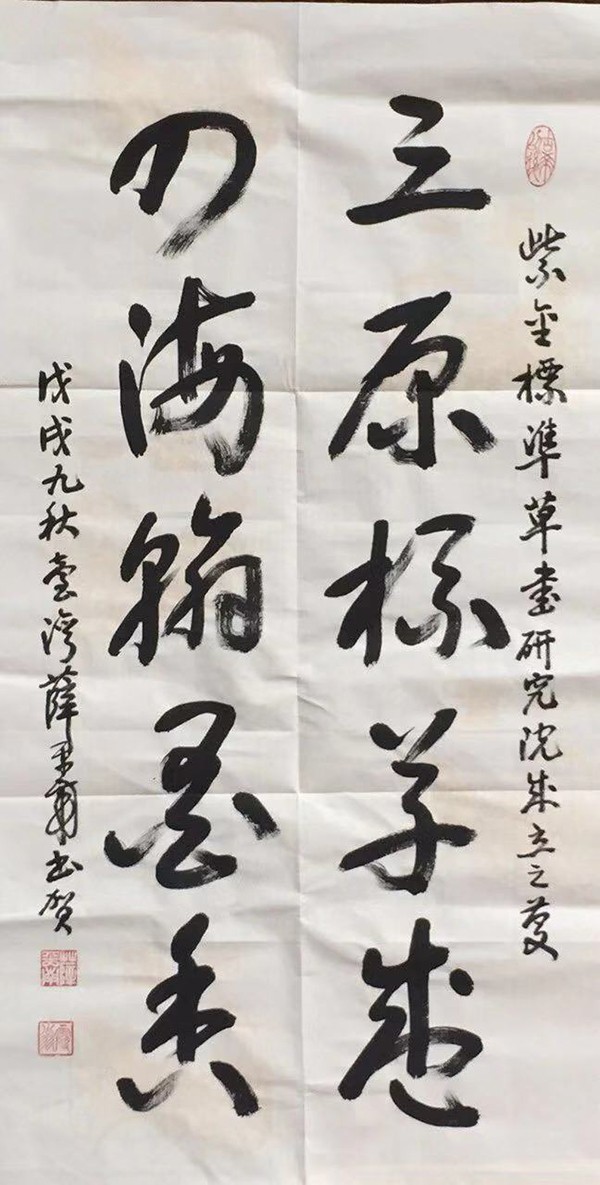 紫金標準草書研究院成立之慶
三原標草盛
四海翰墨香
戊戌九秋臺灣薛平南書賀